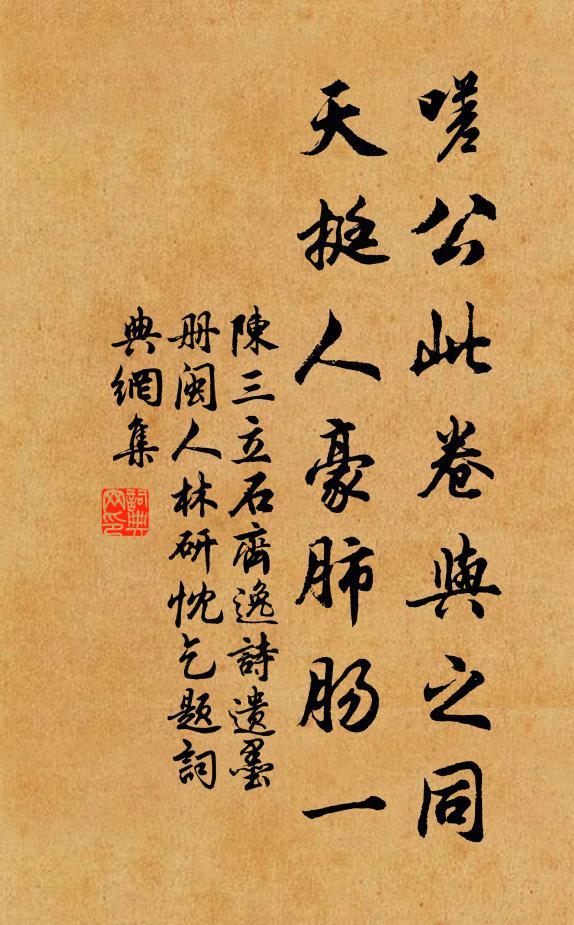 嗟公此卷與之同
天挺人豪肺肠一
陳三立石齊逸詩遺墨
册閩人林研忱乞題詞
典網集
詞典網印